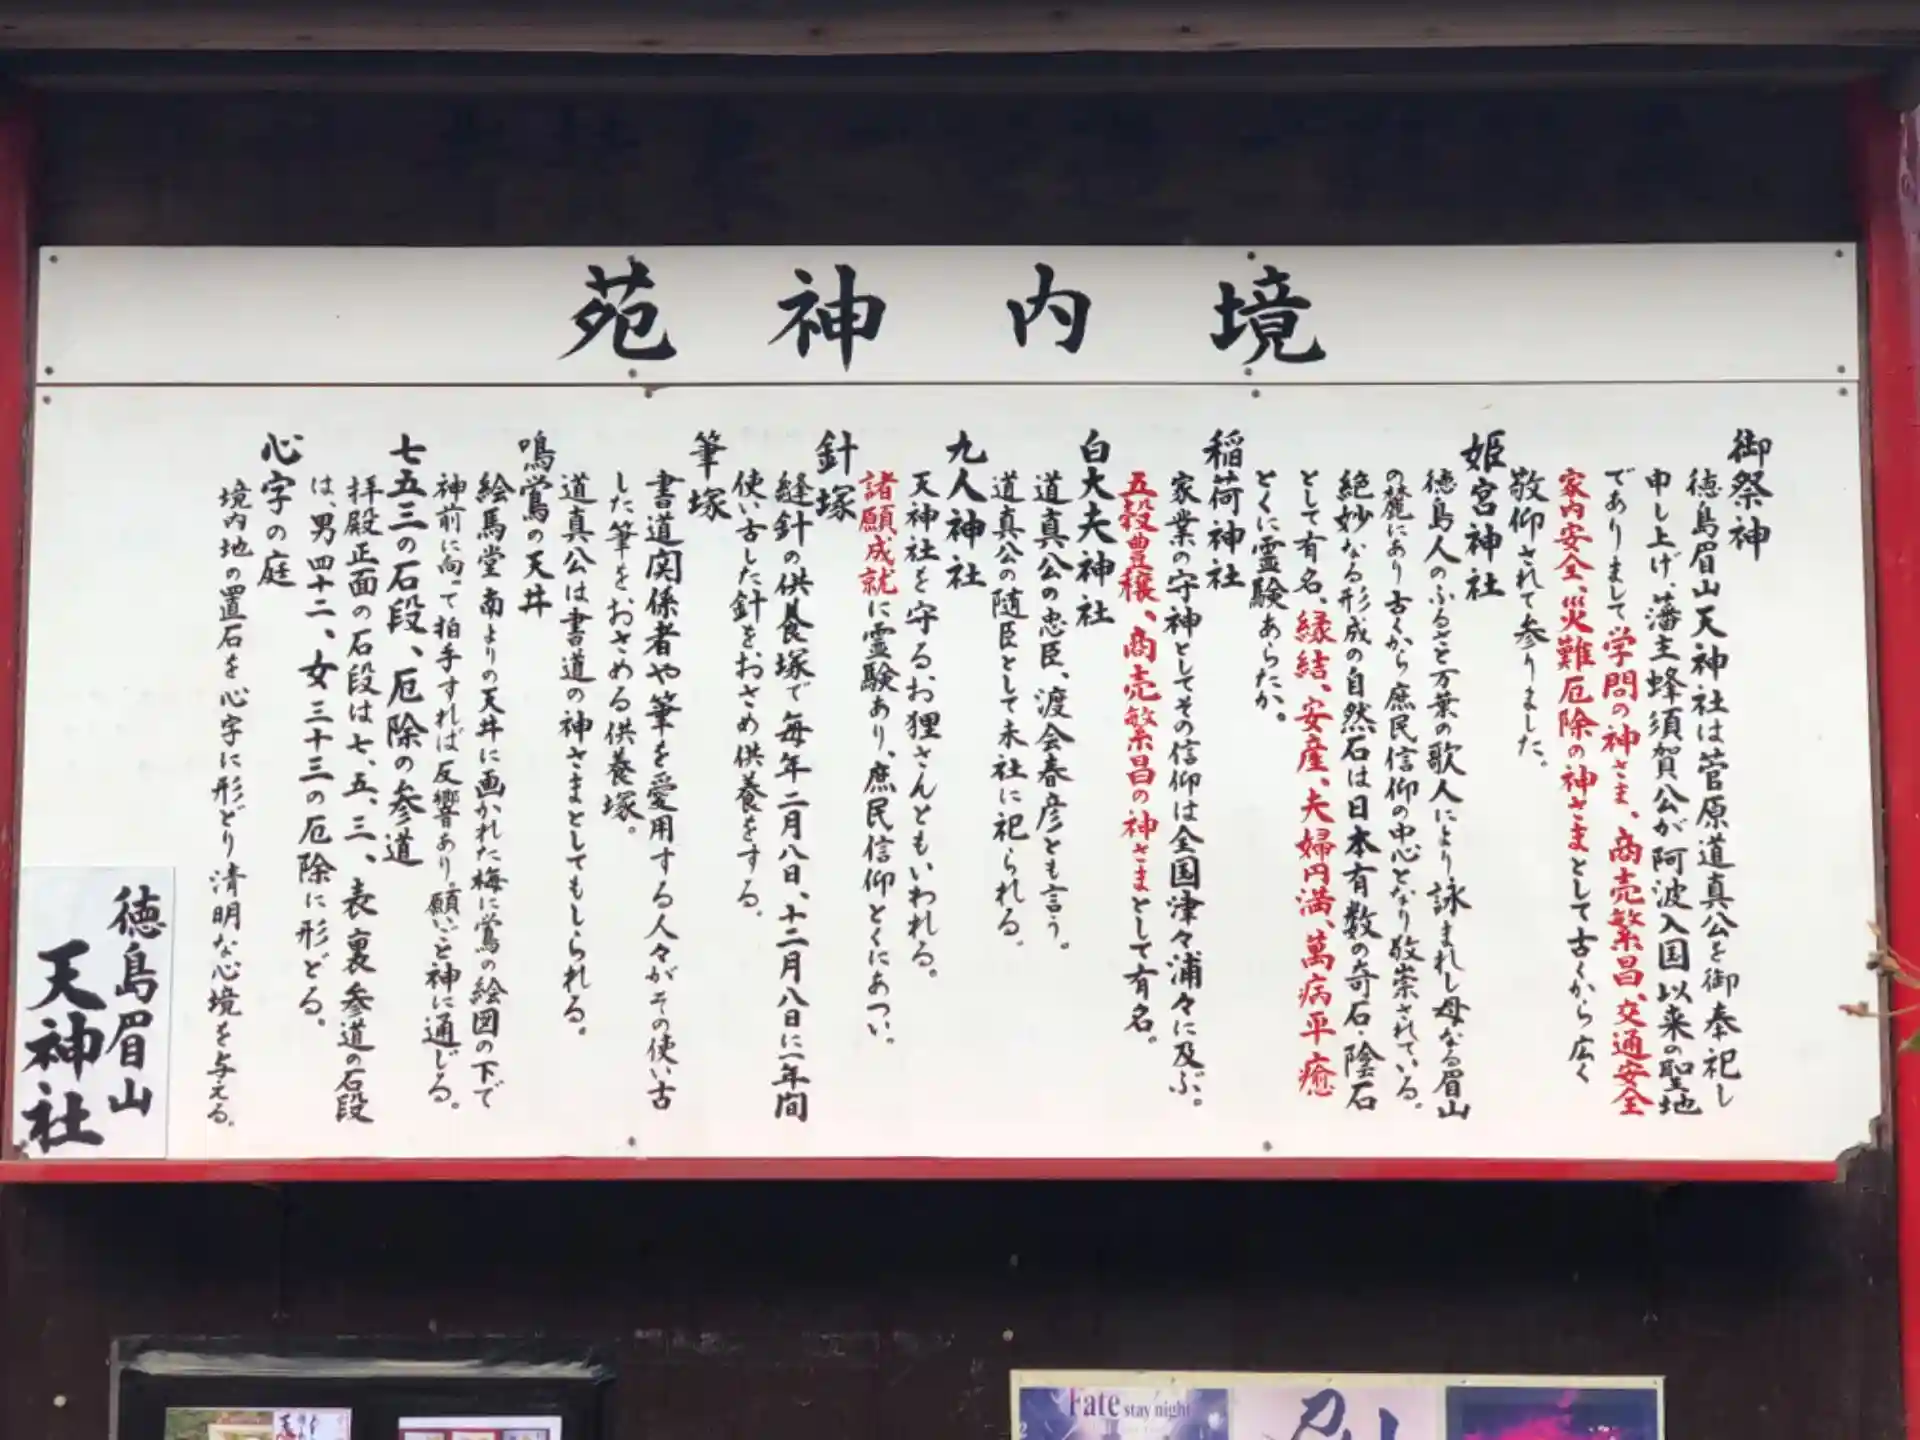 境内神苑
御祭神
徳島眉山天神社は菅原道真公を御奉祀し
申し上げ、藩主蜂須賀公が阿波入国以来の聖地
でありまして学問の神さま、商売繁昌、交通安全
家内安全、災難厄除の神さまとして古くから広く
敬仰されて参りました。
姫宮神社
徳島人のふるさと万葉の歌人により詠まれし母なる眉山
の麓にあり古くから庶民信仰の中心となり敬崇されている。
絶妙なる形成の自然石は日本有数の奇石・陰石
として有名、縁結、安産、夫婦円満、萬病平癒
とくに霊験あらたか。
稲荷神社
家業の守神としてその信仰は全国津々浦々に及ぶ。
五穀豊穣、商売繁昌の神さまとして有名。
白大夫神社
道真公の忠臣、渡会春彦とも言う。
道真公の随臣として末社に祀られる。
九人神社
天神社を守るお狸さんともいわれる。
諸願成就に霊験あり、庶民信仰とくにあつい。
針塚
縫針の供養塚で毎年二月八日、十二月八日に一年間
使い古した針をおさめ供養をする。
筆塚
書道関係者や筆を愛用する人々がその使い古
した筆をおさめる供養塚。
道真公は書道の神さまとしてもしられる。
鳴鴬の天井
絵馬堂南よりの天井に画かれた梅に鴬の絵図の下で
神前に向って拍手すれば反響あり、願いごと神に通じる。
七五三の石段、厄除の参道
拝殿正面の石段は七、五、三、表裏参道の石段
は、男四十二、女三十三の厄除に形どる。
心字の庭
境内地の置石を心字に形どり清明な心境を与える。
徳島眉山
天神社
Fate stay night